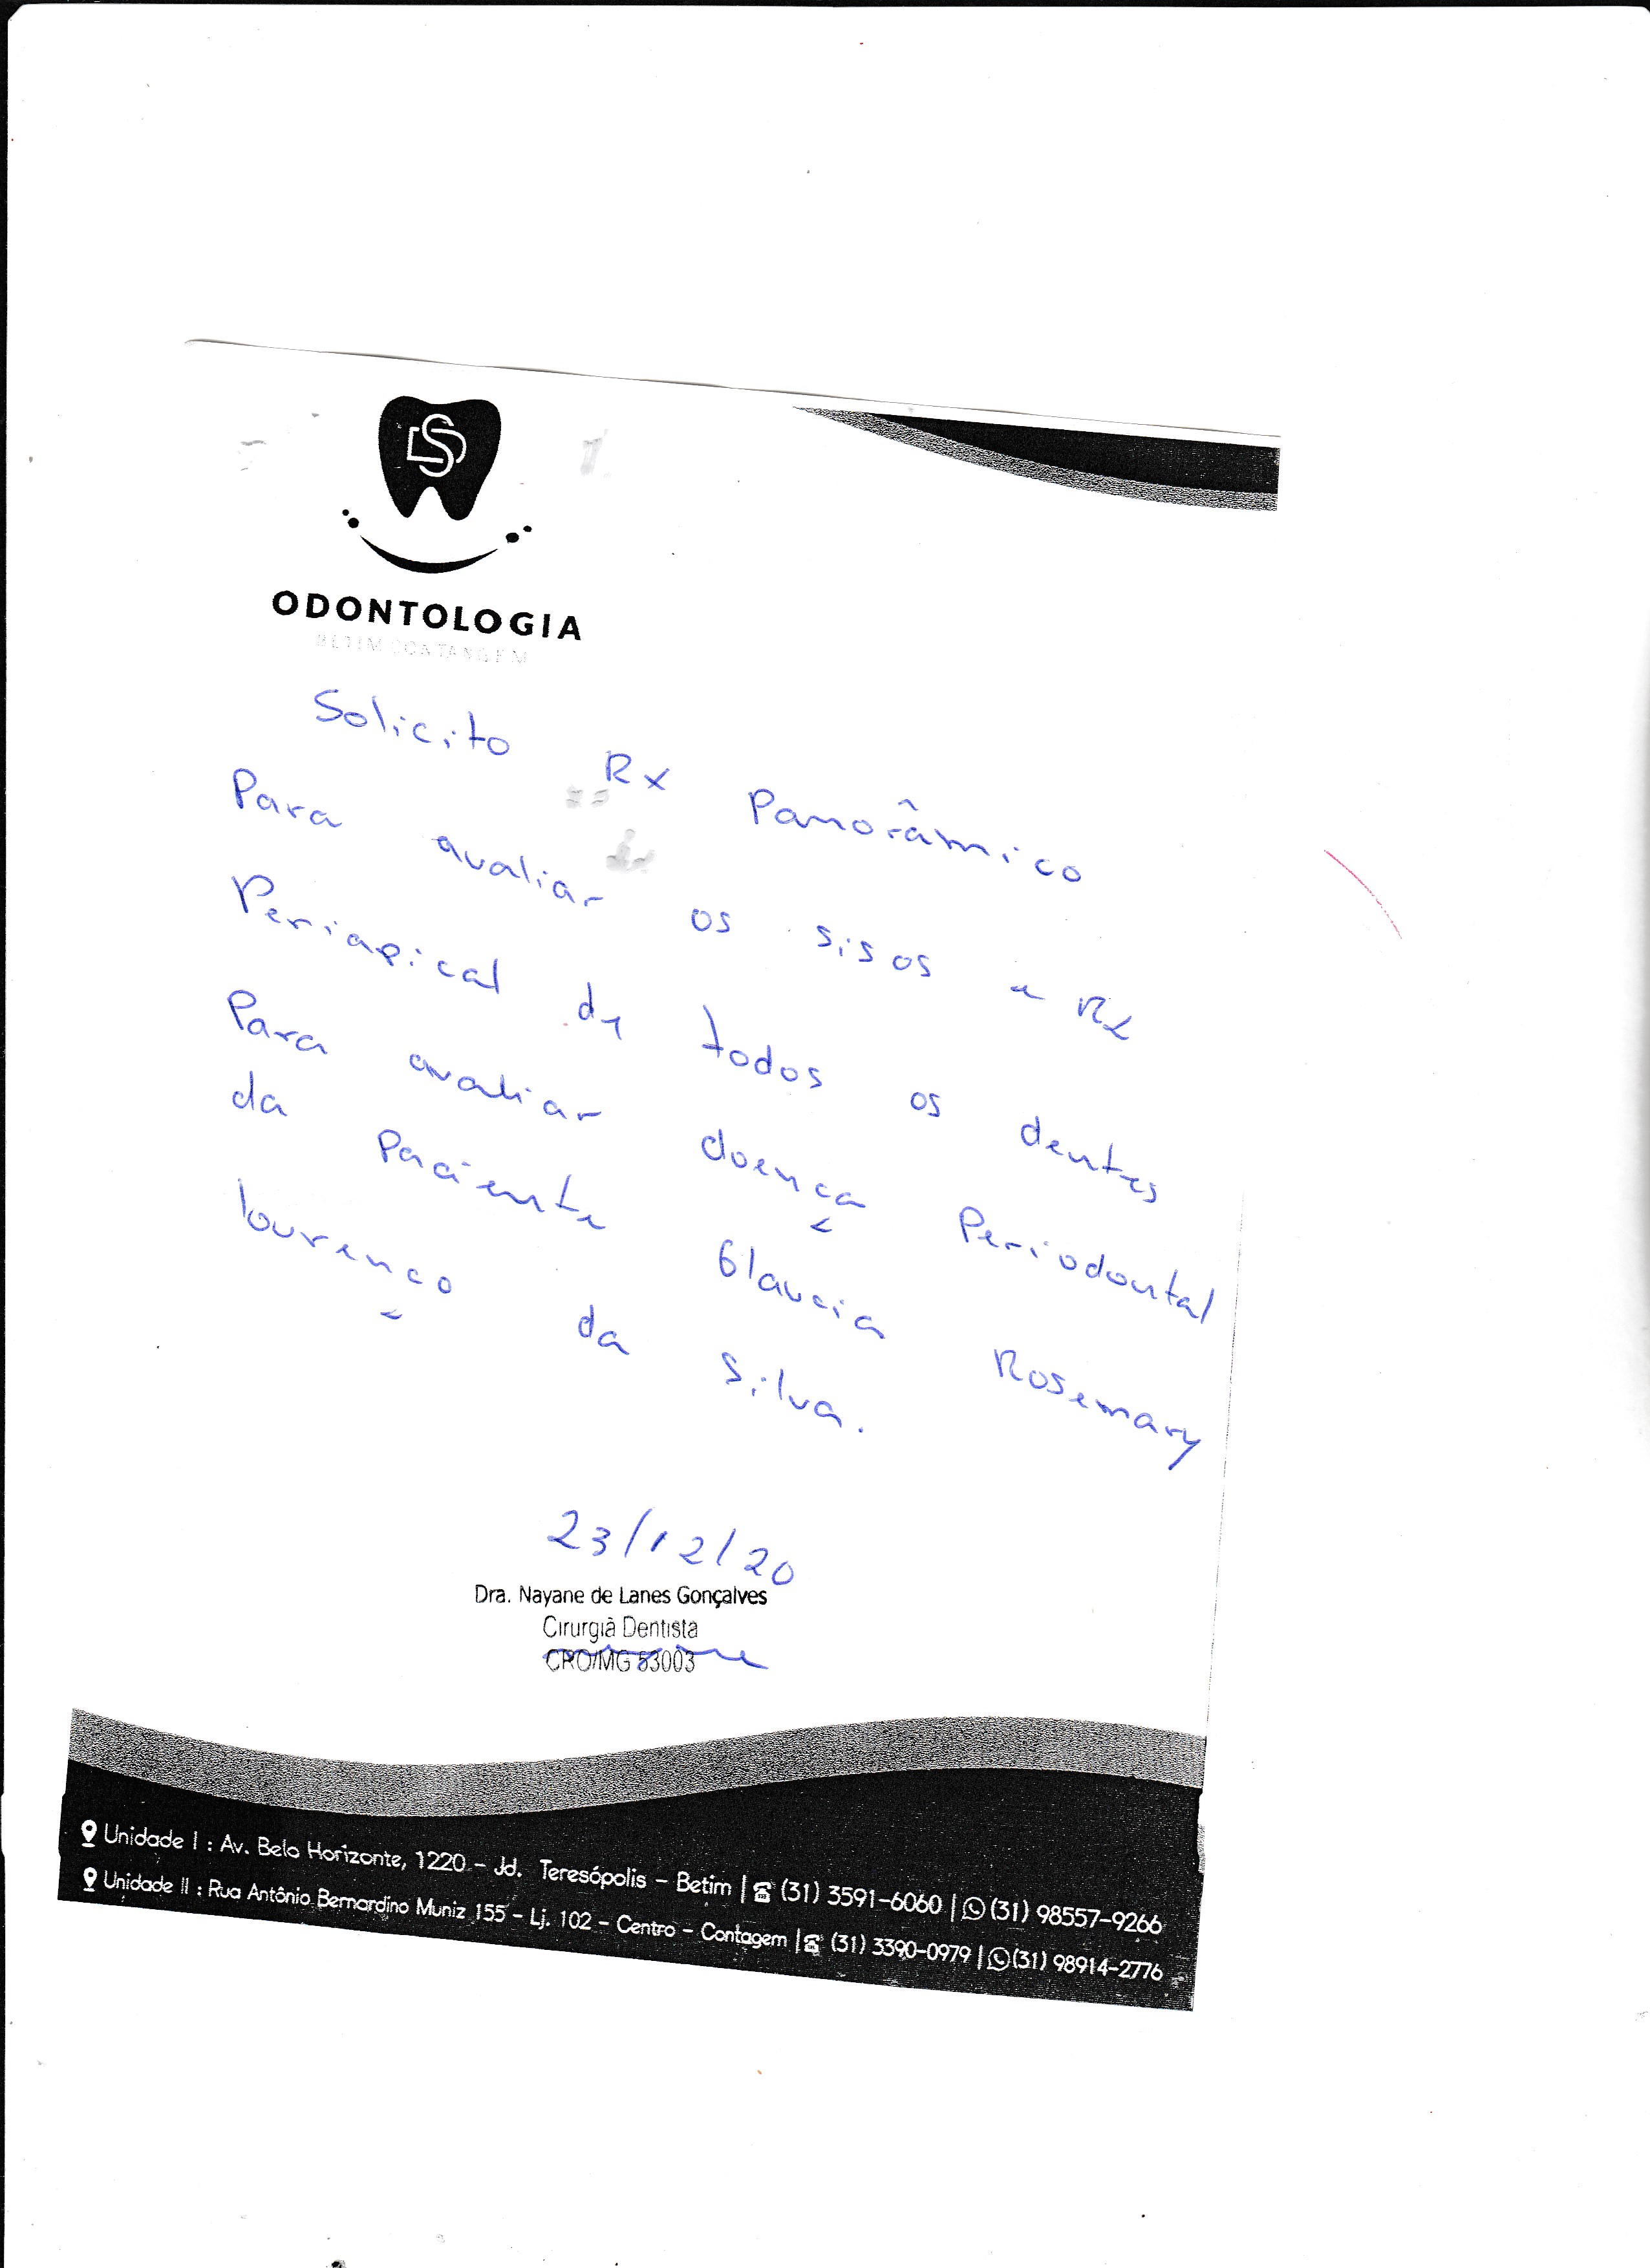 DS
ODONTOLOGIA
BETIM CONTAGEM
Solicito RX Panorâmico
Para avaliar os sisos e RX
Periapical de todos os dentes
Para avaliar doença Periodontal
da Paciente Glaucia Rosemary
lourenço da Silva.
23/12/20
Dra. Nayane de Lanes Gonçalves
Cirurgiã Dentista
CRO/MG 53003
Unidade I : Av. Belo Horizonte, 1220 - Jd. Teresópolis - Betim | (31) 3591-6060 | (31) 98557-9266
Unidade II : Rua Antônio Bernardino Muniz 155 - Lj. 102 - Centro - Contagem | (31) 3390-0979 | (31) 98914-2776